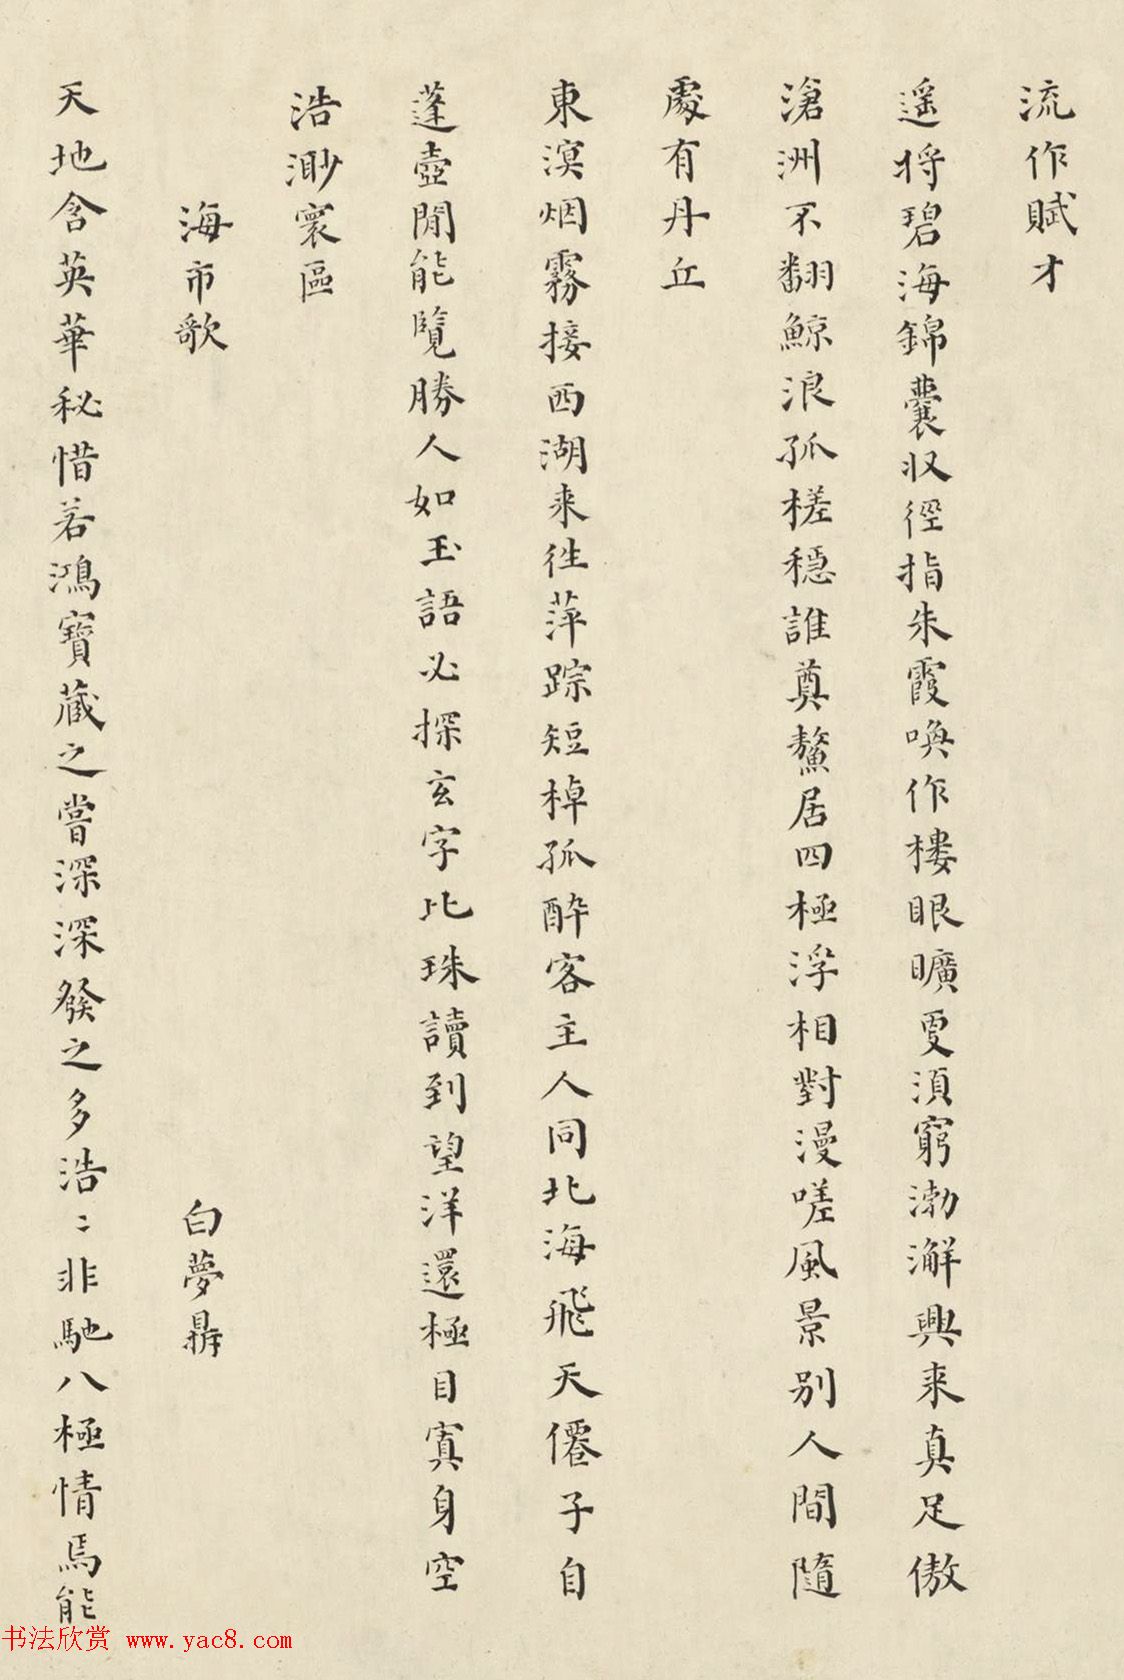 流作賦才
遥将碧海錦囊収徑指朱霞喚作樓眼曠更須窮渤澥興来真足傲
滄洲不翻鯨浪孤槎穩誰奠鰲居四極浮相對漫嗟風景別人間隨
處有丹丘
東溟烟霧接西湖来往萍踪短棹孤醉客主人同北海飛天僊子自
蓬壺閒能覽勝人如玉語必探玄字比珠讀到望洋還極目寘身空
浩渺寰區
海市歌 白夢鼐
天地含英華秘惜若鴻寶藏之嘗深深發之多浩〻非馳八極情焉能
书法欣赏 www.yac8.com